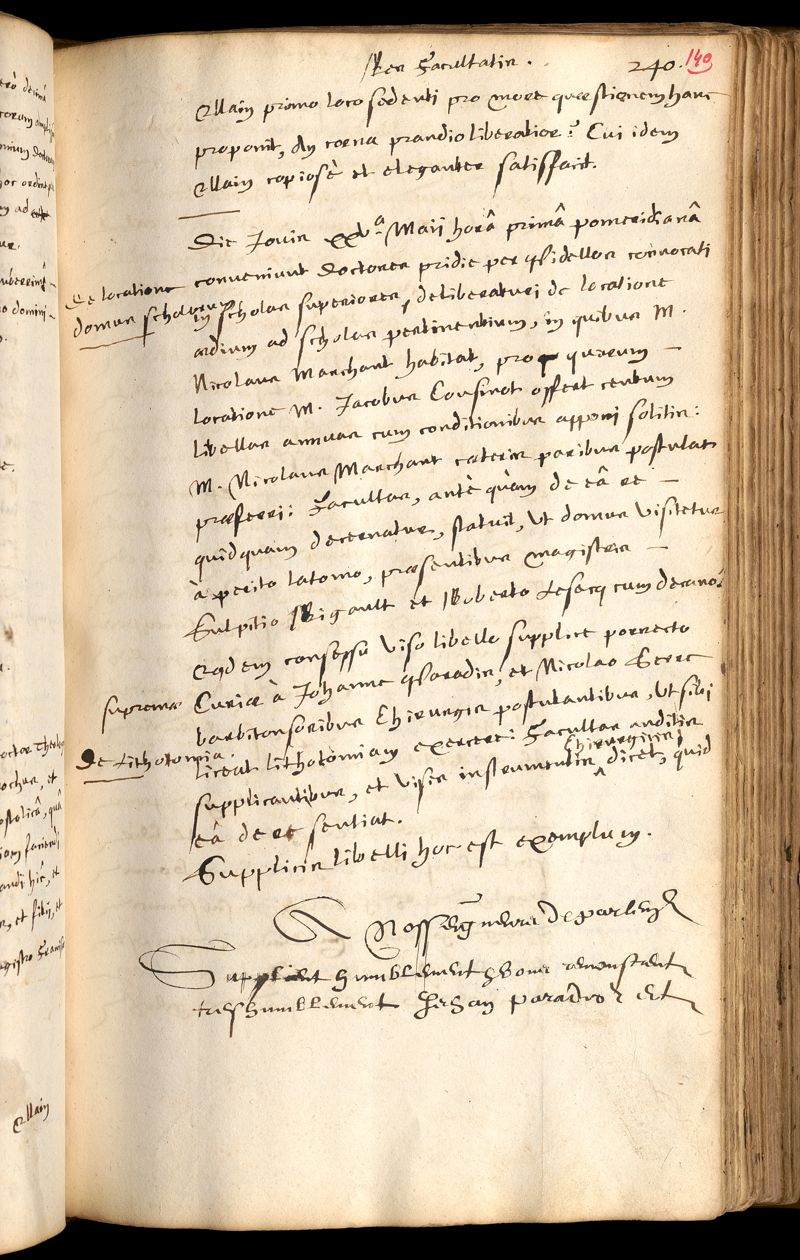 Res Facultatis.
240. 140
Ellain primo loco sedenti pro more quæstionem hanc
proponit, An cœna prandio liberalior? Cui idem
Ellain copiosè et eleganter satisfacit.
Die Jovis xxvª Maii horâ primâ pomeridianâ
conveniunt Doctores pridie per Bidellos convocati
De locatione
domus scholarum
in scholas superiores, deliberaturi de locatione
ædium ad scholas pertinentium, in quibus M.
Nicolaus Marchant habitat, pro quarum
locatione M. Jacobus Cousinot offert centum
libellas annuas cum conditionibus apponi solitis:
M. Nicolaus Marchant cæteris paribus postulat
præferri: Facultas, antè quàm de eâ re
quidquam decernatur, statuit, ut domus visitetur
à perito latomo, præsentibus magistris
Sulpitio Rigault et Roberto Lesecq cum decano.
Eodem consessu viso libello supplice porrecto
supremæ
Curiæ à Johanne Paradis, et Nicolao Serre
barbitonsoribus Chirurgis postulantibus, ut sibi
De Lithotomia.
liceat lithotomiam exercere: Facultas auditis
supplicantibus, et visis instrumentis Chirurgicis, dicet, quid
eâ de re sentiat.
Supplicis libelli hoc est exemplum.
A Nosseigneurs de parlement
Supplient humblement
treshumblement Jehan paradis et
Ellain